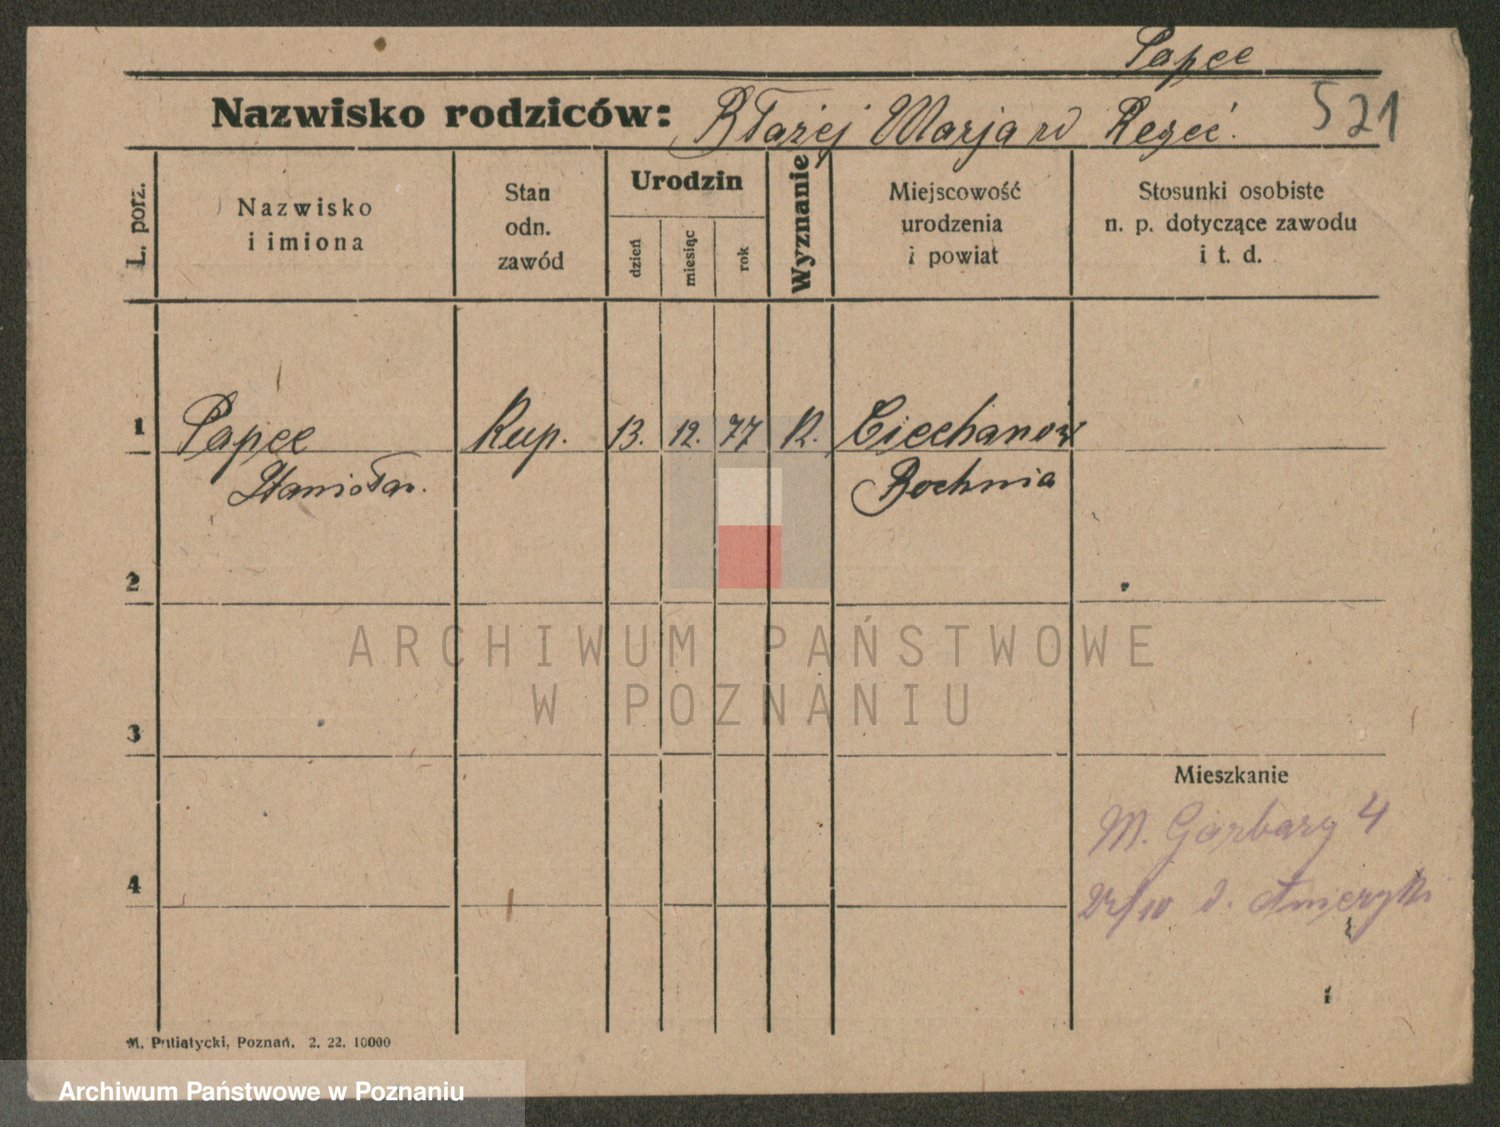 Papee
Nazwisko rodziców: Błażej Marja rd
521
L. porz.
Nazwisko
i imiona
Stan
odn.
zawód
Urodzin
dzień
miesiąc
rok
Wyznanie
Miejscowość
urodzenia
i powiat
Stosunki osobiste
n. p. dotyczące zawodu
i t. d.
1 Papee Kup. 13. 12. 77 K. Ciechanów
Stanisław. Bochnia
2
3
Mieszkanie
M. Garbary 4
4
d. Ameryki
M. Putiatycki, Poznań. 2. 22. 10000
ARCHIWUM PAŃSTWOWE
W POZNANIU
Archiwum Państwowe w Poznaniu